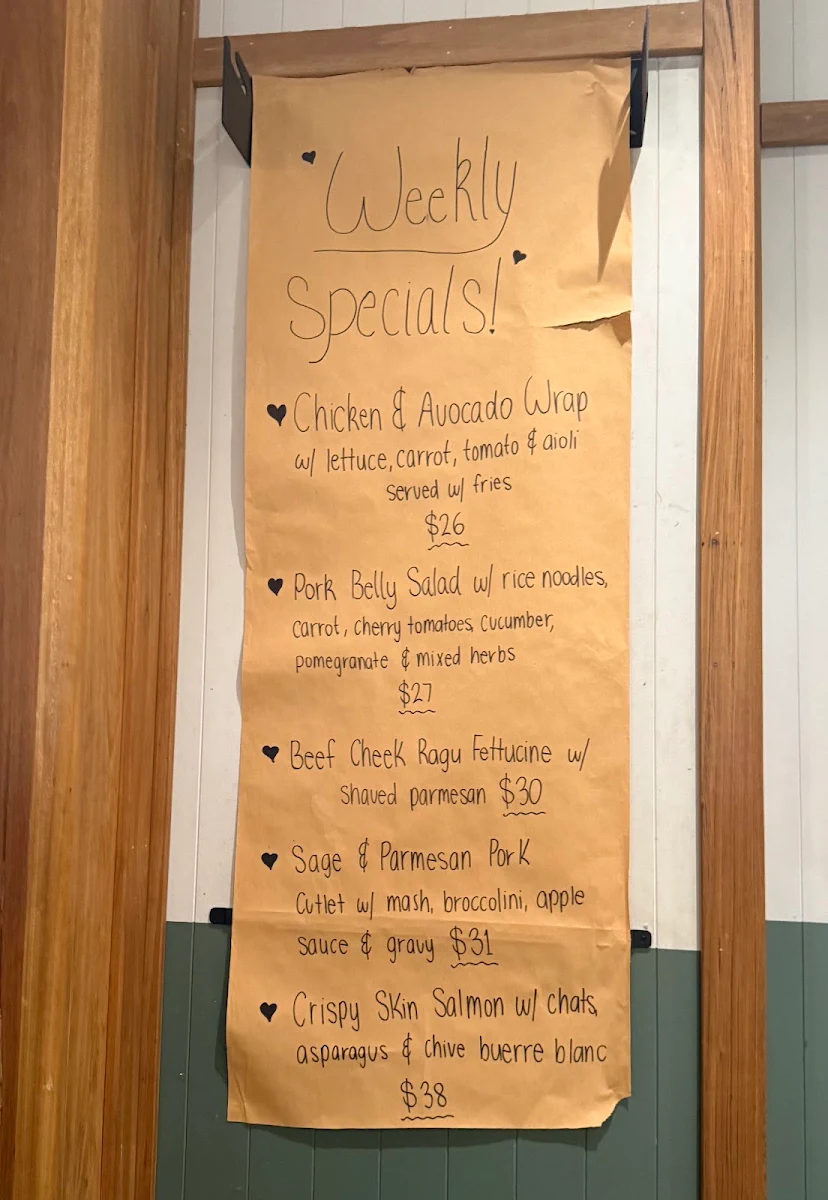 Weekly
Specials!
Chicken & Avocado Wrap
w/ lettuce, carrot, tomato & aioli
served w/ fries
$26
Pork Belly Salad w/ rice noodles,
carrot, cherry tomatoes, cucumber,
pomegranate & mixed herbs
$27
Beef Cheek Ragu Fettucine w/
shaved parmesan $30
Sage & Parmesan Pork
Cutlet w/ mash, broccolini, apple
sauce & gravy $31
Crispy Skin Salmon w/ chats,
asparagus & chive buerre blanc
$38